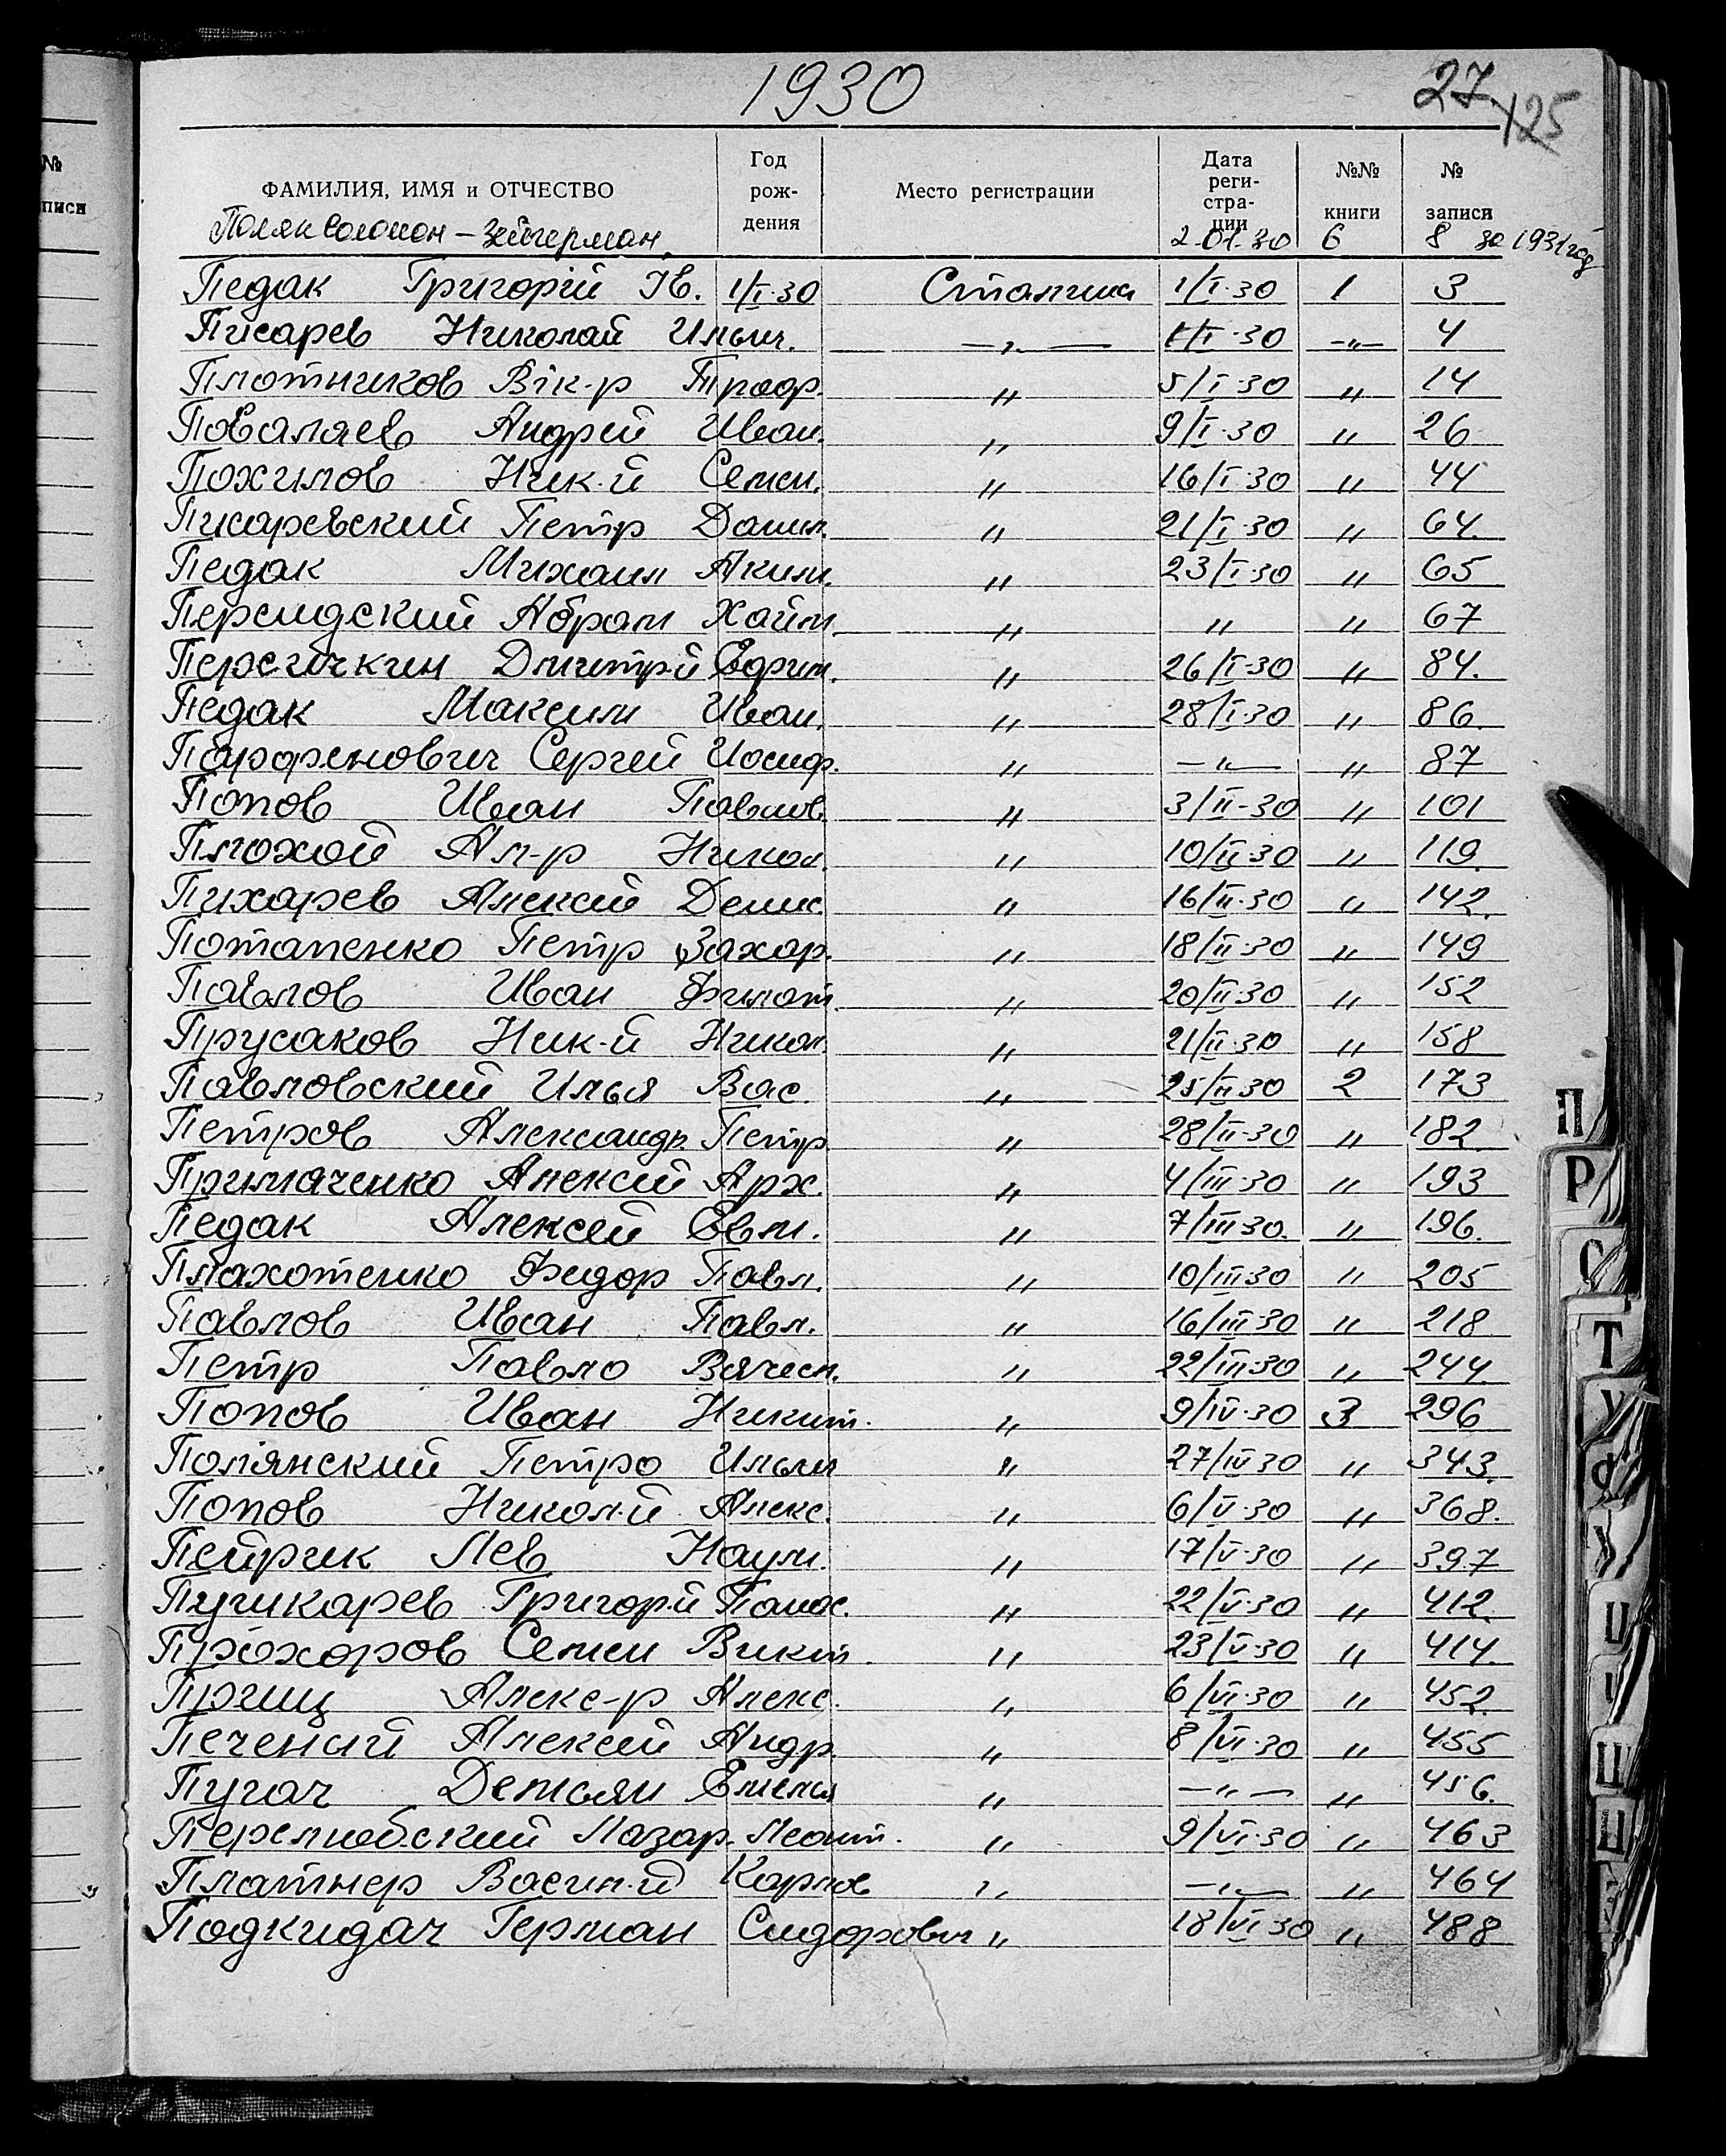 1930
27
125
№
писи
ФАМИЛИЯ, ИМЯ и ОТЧЕСТВО Год рождения Место регистрации Дата регистрации №№ книги № записи
Поляк Соломон – Зейгерман 2-01-30 6 8 за 1931 год
Педак Григорій Ів. 1/I-30 Сталина 1/I-30 1 3
Писарев Николай Ильич. —„— 1/I-30 -„- 4
Плотников Вік-р Троф. „ 5/I-30 „ 14
Поваляев Андрей Иван. „ 9/I-30 „ 26
Похилов Ник-й Семен. „ 16/I-30 „ 44
Писаревский Петр Данил. „ 21/I-30 „ 64.
Педак Михаил Аким. „ 23/I-30 „ 65
Персидский Абрам Хайм. „ „ „ 67
Пересичкин Дмитрий Ефрим. „ 26/I-30 „ 84.
Педак Максим Иван. „ 28/I-30 „ 86.
Парфенович Сергей Иосиф. „ —„— „ 87
Попов Иван Павлов. „ 3/II-30 „ 101
Плохой Ал-р Никол. „ 10/II-30 „ 119.
Пихарев Алексей Денис. „ 16/II-30 „ 142.
Потапенко Петр Захар. „ 18/II-30 „ 149
Павлов Иван Филат. „ 20/II-30 „ 152
Прусаков Ник-й Никол. „ 21/II-30 „ 158
Павловский Илья Вас. „ 25/II-30 2 173
Петров Александр. Петр. „ 28/II-30 „ 182
Примаченко Алексей Арх. „ 4/III-30 „ 193
Педак Алексей Евм. „ 7/III-30. „ 196.
Плахотенко Федор Павл. „ 10/III-30 „ 205
Павлов Иван Павл. „ 16/III-30 „ 218
Петр Павло Вячесл. „ 22/III-30 „ 244.
Попов Иван Никит. „ 9/IV-30 3 296
Полянский Петро Ильич „ 27/IV-30 „ 343.
Попов Никол-й Алекс. „ 6/V-30 „ 368.
Пейрик Лев Наум. „ 17/V-30 „ 397
Пушкарев Григор-й Панас. „ 22/V-30 „ 412.
Прохоров Семен Викт. „ 23/V-30 „ 414.
Прищ Алекс-р Алекс. „ 6/VI-30 „ 452.
Печеный Алексей Андр. „ 8/VI-30 „ 455
Пугач Демьян Емельян „ —„— „ 456.
Лазар. „ 9/VI-30 „ 463
Платнер Васил-й Карпов „ —„— „ 464
Подкидач Герман Сидорович „ 18/VI-30 „ 488
П
Р
С
Т
У
Ф
Х
Ц
Ш